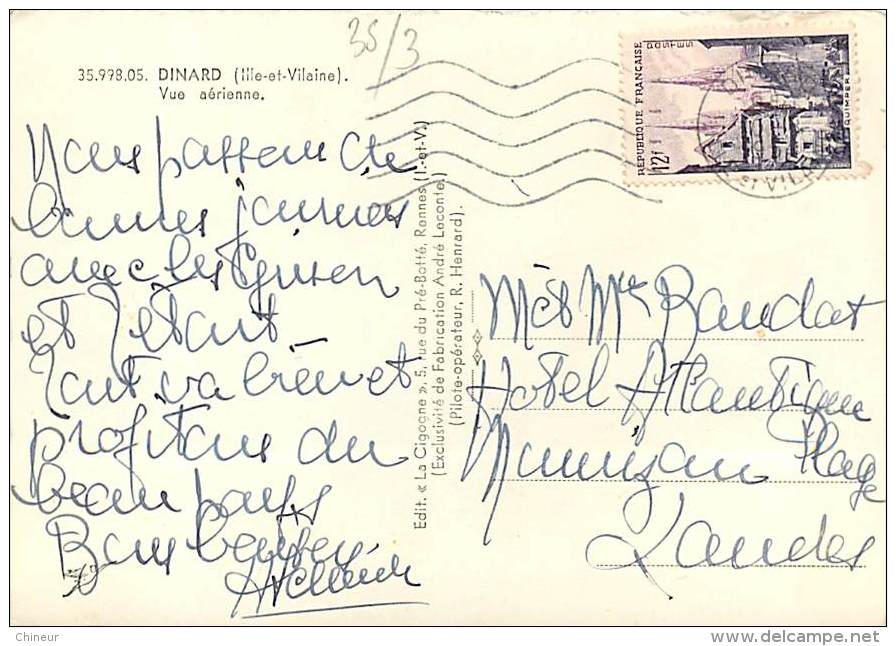 35/3
35.998.05. DINARD (Ille-et-Vilaine).
Vue aérienne.
Nous passons de
bonnes journées
avec les
et
tout va bien et
profitons du
beau pays
Bons baisers
Edit. « La Cigogne », 5, rue du Pré-Botté, Rennes (I.-et-V.)
(Exclusivité de Fabrication André Leconte.)
(Pilote-opérateur, R. Henrard).
REPUBLIQUE FRANÇAISE
POSTES
12f
QUIMPER
VILAINE
M et Mme Baudat
Hotel Atlantique
Mimizan Plage
Landes
Chineur
delcampe.net